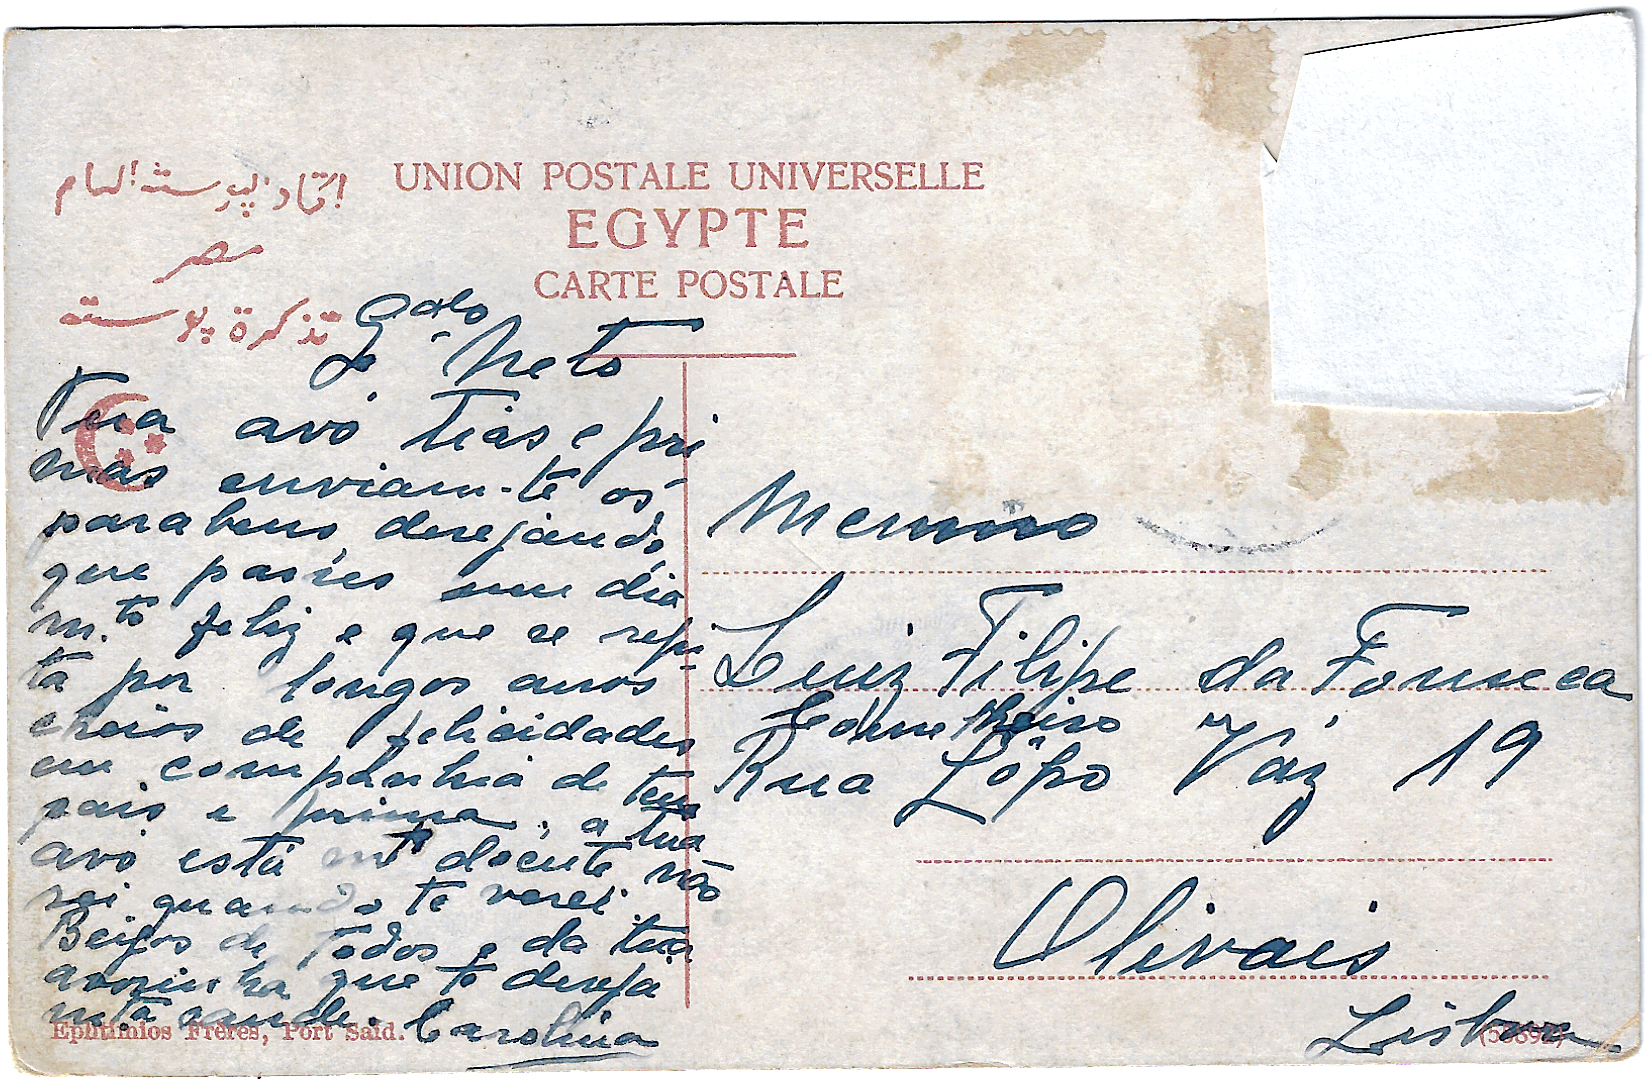 اتحاد البوستة العام
مصر
تذكرة بوستة
UNION POSTALE UNIVERSELLE
EGYPTE
CARTE POSTALE
Neto
Tua avó tias e pri
mas enviam-te os
parabens desejando
que passes um dia
m.to feliz e que se repi-
ta por longos anos
cheios de felicidades
em companhia de teus
pais e prima, a tua
avó está mto doente não
sei quando te verei
Beijos de todos e da tua
avozinha que te deseja
mta saude. Carolina
Menino
Luiz Filipe da Fonseca
Conselheiro
Rua Lôpo Váz 19
Olivais
Lisboa
Ephtimios Frères, Port Said.